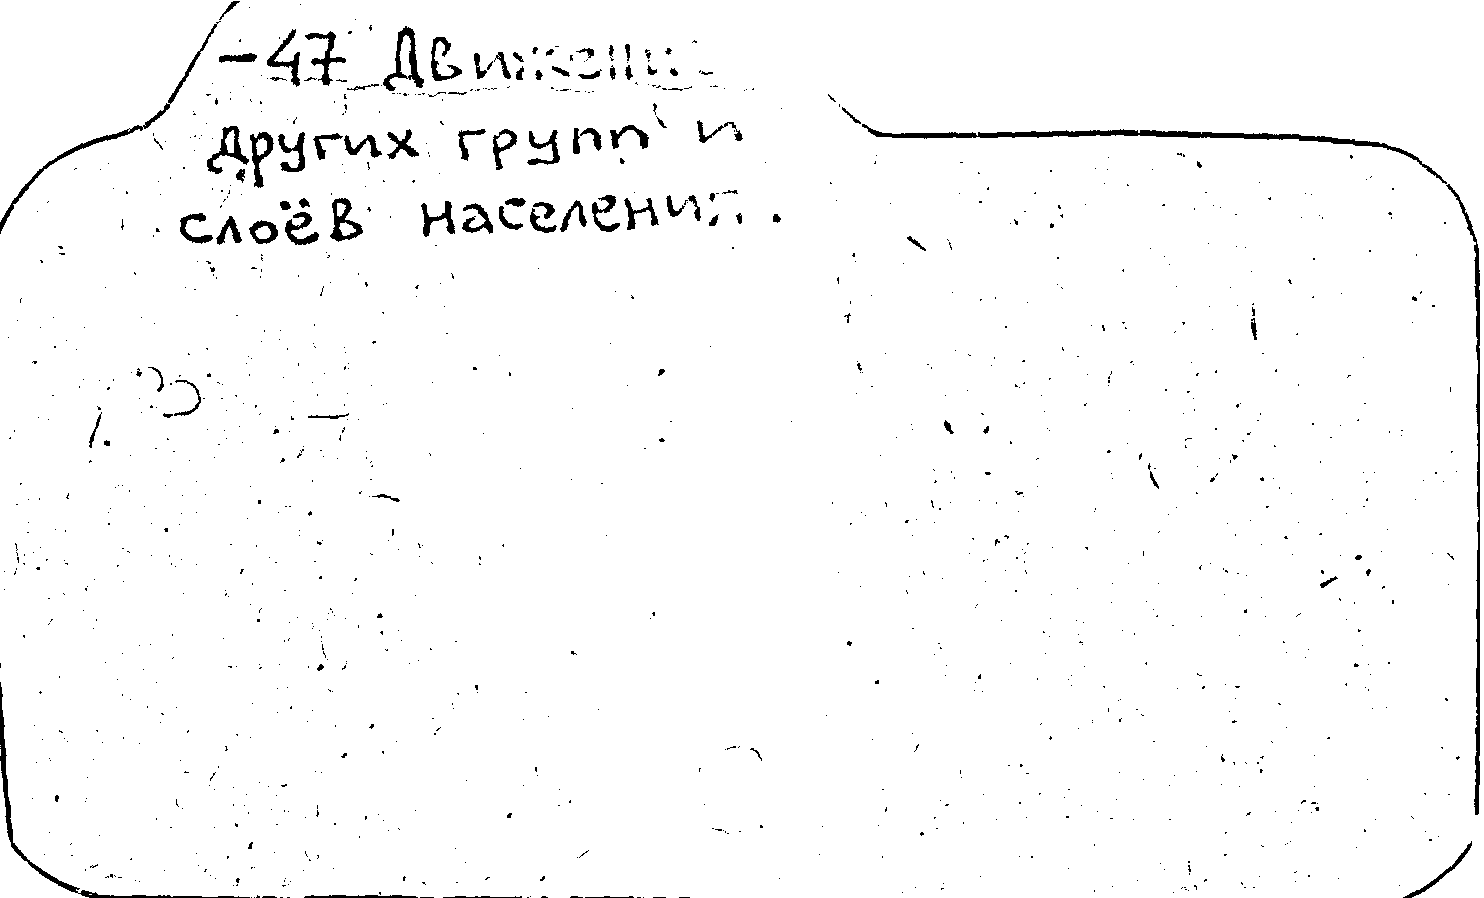 -47 Движение
других групп и
слоёв населения.